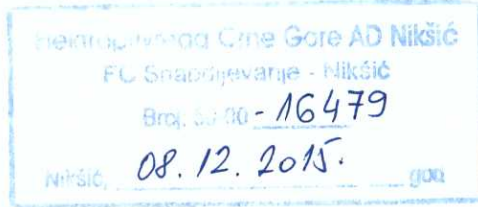 Elektroprivreda Crne Gore AD Nikšić
FC Snabdijevanje - Nikšić
Broj: -16479
Nikšić, 08.12.2015. god